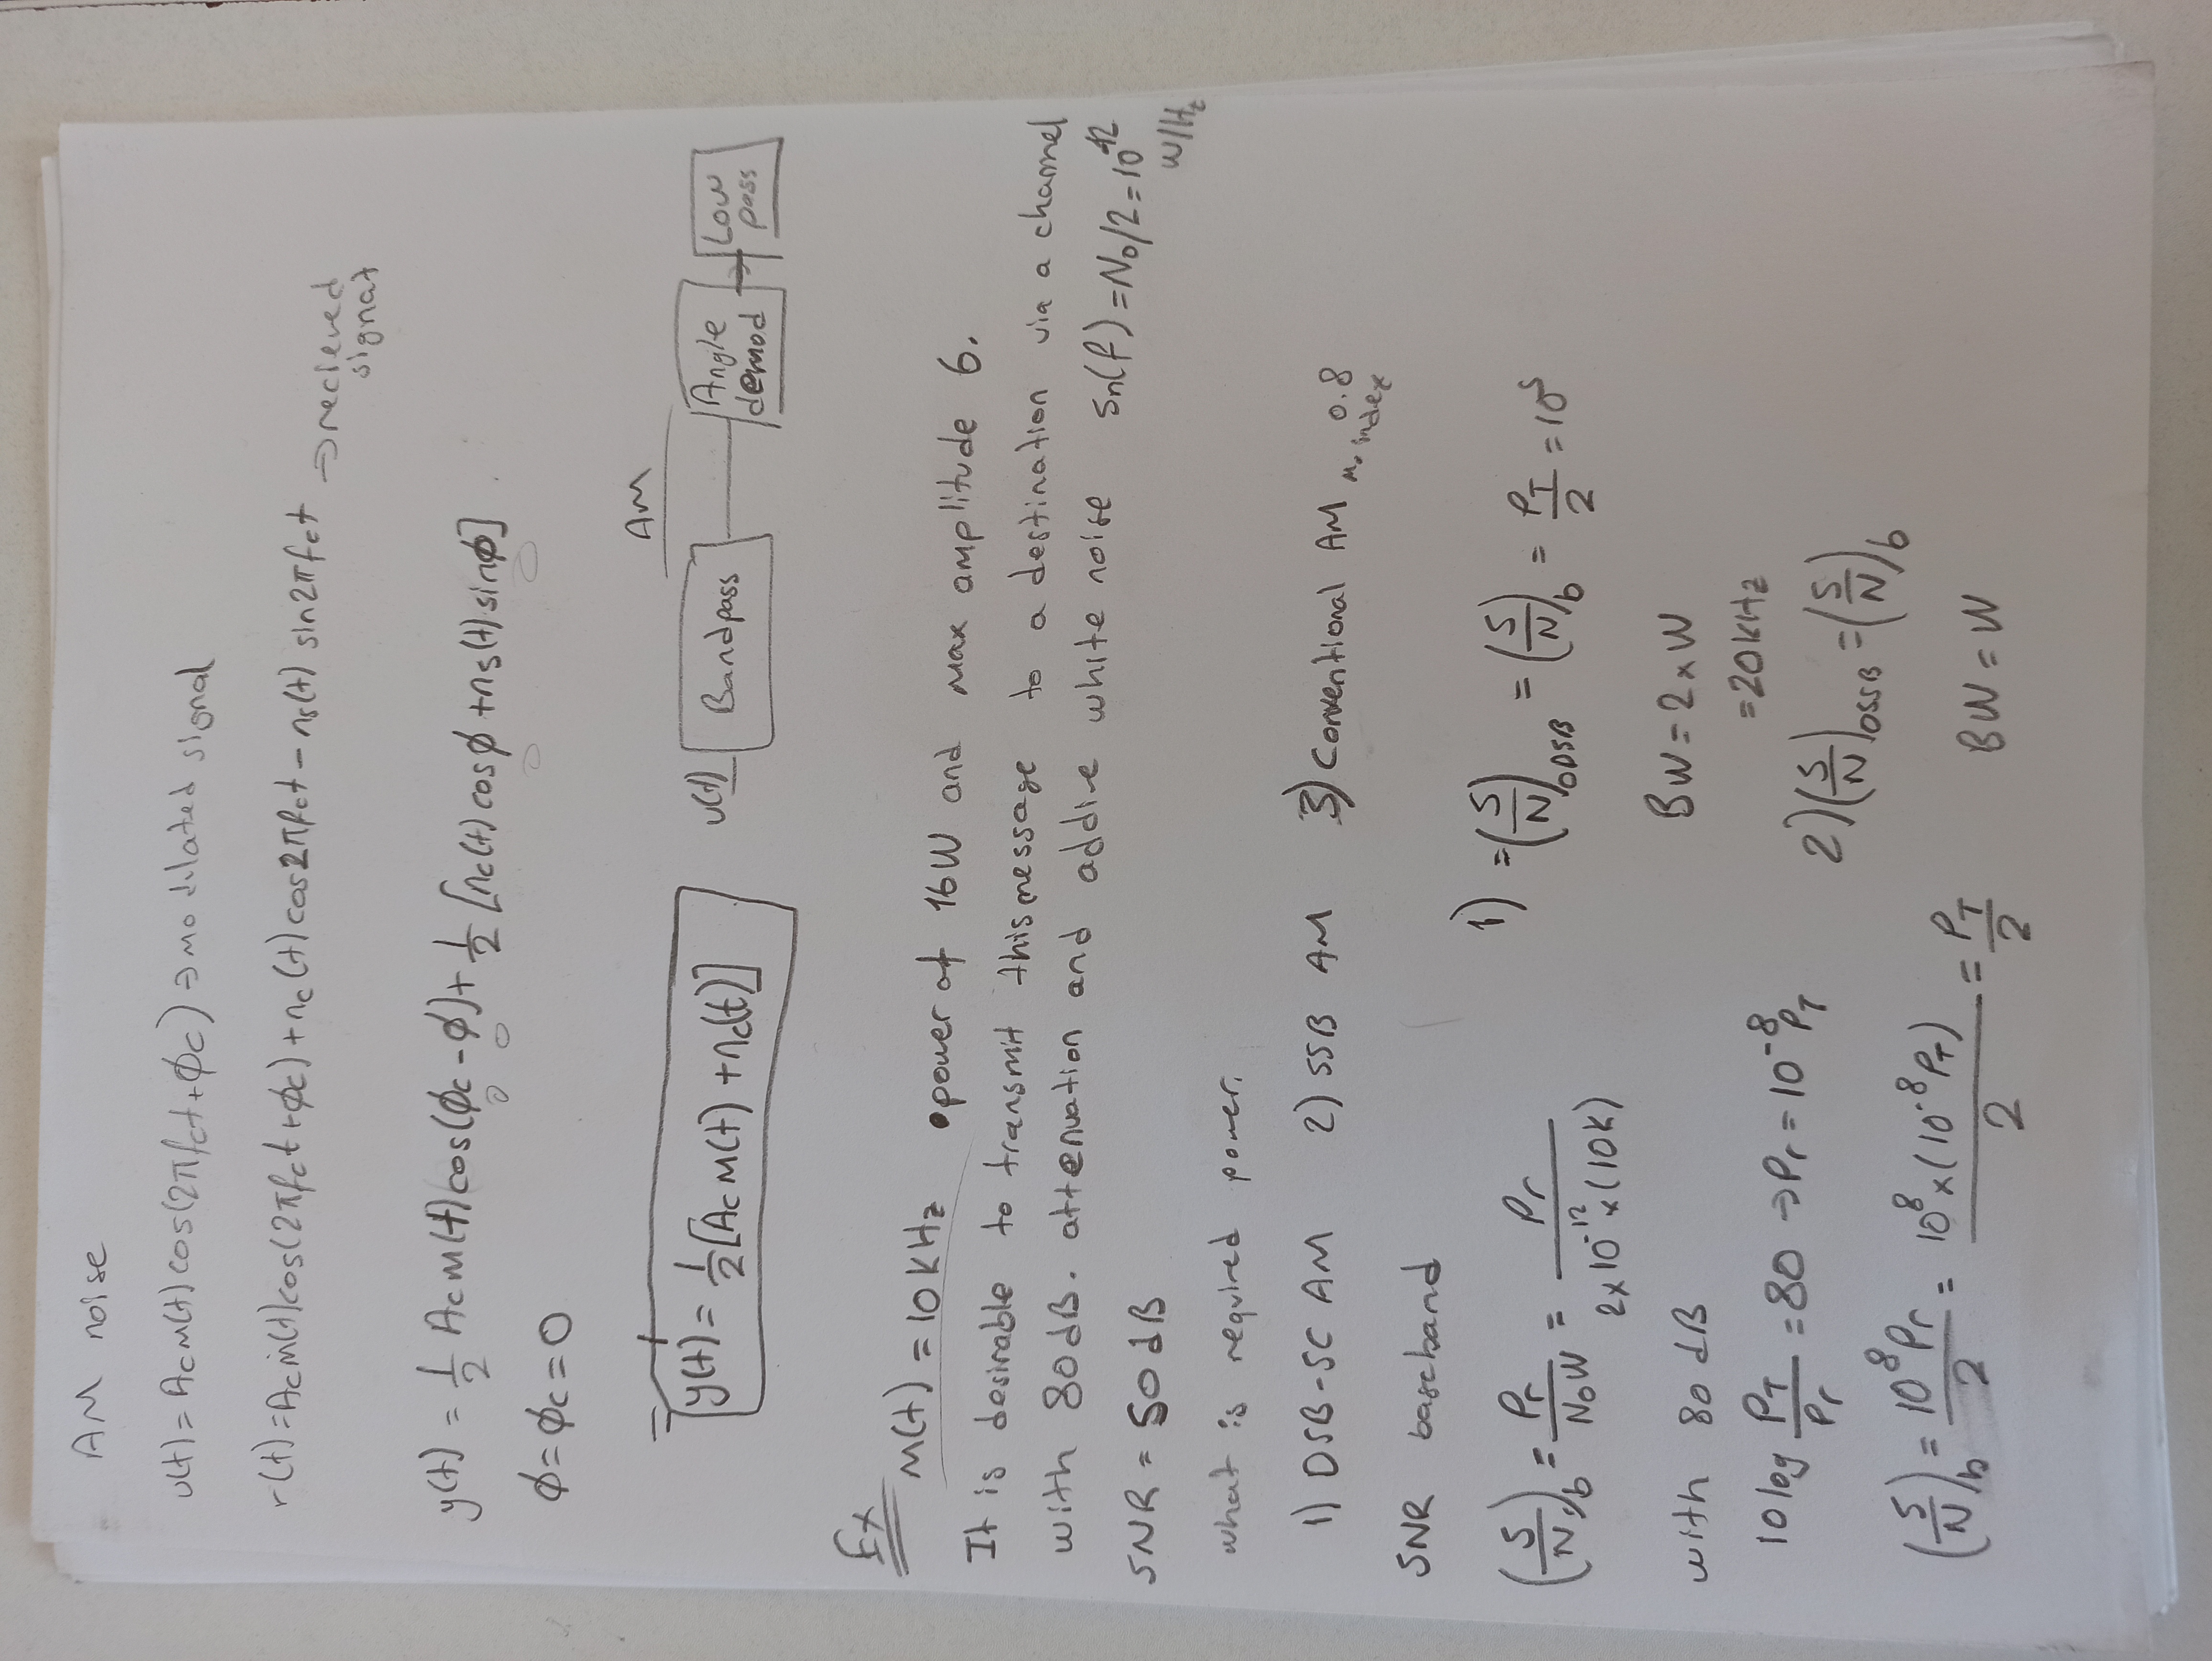 AM noise
u(t) = Ac m(t) cos(2πfct + ϕc) ⇒ modulated signal
r(t) = Ac m(t) cos(2πfct + ϕc) + nc(t) cos2πfct − ns(t) sin2πfct ⇒ recieved
signal
y(t) = 1/2 Ac m(t) cos(ϕc − ϕ) + 1/2 [nc(t) cosϕ + ns(t) sinϕ]
0 0 0 0
ϕ = ϕc = 0
y(t) = 1/2 [Ac m(t) + nc(t)]
AM
u(t) Bandpass Angle demod → Low pass
Ex
m(t) = 10 kHz power of 16W and max amplitude 6.
It is desirable to transmit this message to a destination via a channel
with 80 dB. attenuation and addive white noise Sn(f) = N0/2 = 10^-12
W/Hz
SNR = 50 dB
what is required power.
1) DSB-SC AM 2) SSB AM 3) Conventional AM 0.8
index
SNR baseband
(S/N)b = Pr/N0W = Pr/(2x10^-12 x (10K))
with 80 dB
10 log PT/Pr = 80 → Pr = 10^-8 PT
(S/N)b = 10^8 Pr/2 = 10^8 x (10^-8 PT)/2 = PT/2
1) = (S/N)0DSB = (S/N)b = PT/2 = 10^5
BW = 2 x W
= 20 kHz
2) (S/N)0SSB = (S/N)b
BW = W